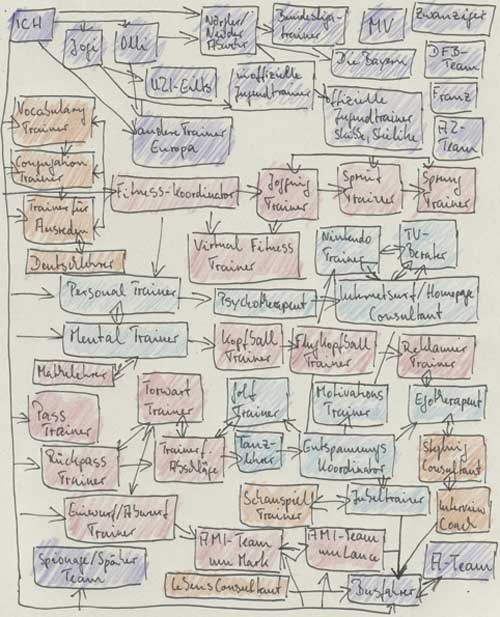 ICH
Jogi
Olli
Nörgler/
Neider
Bundesliga-
trainer
MV
Zwanziger
Die Bayern
DFB-
Team
U21-Eilts
inoffizielle
Jugendtrainer
offizielle
Jugendtrainer
Franz
AZ-
Team
andere Trainer
Europa
Vocabulary
Trainer
Conjugation
Trainer
Trainer für
Ausreden
Deutschlehrer
Fitness-Koordinator
Jogging
Trainer
Sprint
Trainer
Sprung
Trainer
Virtual Fitness
Trainer
Nintendo
Trainer
TV-
Berater
Personal Trainer
Psychotherapeut
Internetsurf/Homepage
Consultant
Mental Trainer
Kopfball
Trainer
Flugkopfball
Trainer
Reklamier
Trainer
Mathelehrer
Torwart
Trainer
Golf
Trainer
Motivations
Trainer
Egotherapeut
Pass
Trainer
Rückpass
Trainer
Trainer f.
Abschläge
Tanz-
lehrer
Entspannungs
Koordinator
Styling
Consultant
Schauspiel
Trainer
Jubeltrainer
Interview
Coach
Einwurf/Abwurf
Trainer
AMI-Team
um Mark
AMI-Team
um Lance
Spionage/Späher
Team
Lebens Consultant
Busfahrer
A-Team